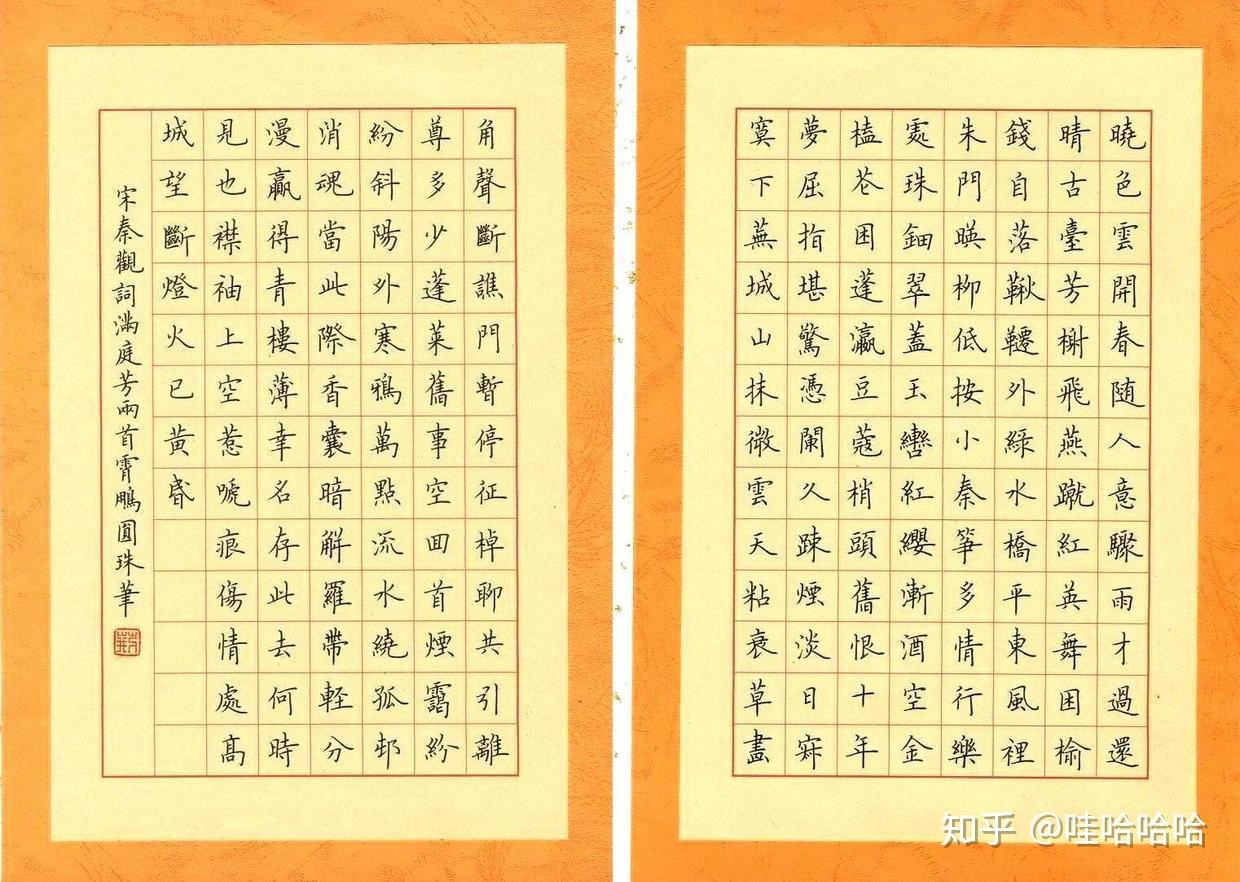 曉色雲開春随人意驟雨才過還
晴古臺芳榭飛燕蹴紅英舞困榆
錢自落鞦韆外綠水橋平東風裡
朱門暎柳低按小秦箏多情行樂
處珠鈿翠蓋玉轡紅纓漸酒空金
榼花困蓬瀛豆蔻梢頭舊恨十年
夢屈指堪驚憑闌久踈煙淡日寂
寞下蕪城山抹微雲天粘衰草畫
角聲斷譙門暫停征棹聊共引離
尊多少蓬萊舊事空回首煙靄紛
紛斜陽外寒鴉萬點流水繞孤邨
消魂當此際香囊暗解羅帶輕分
漫贏得青樓薄幸名存此去何時
見也襟袖上空惹嗁痕傷情處高
城望斷燈火已黃昏
宋秦觀詞滿庭芳兩首霄鵬圓珠筆
知乎 @哇哈哈哈